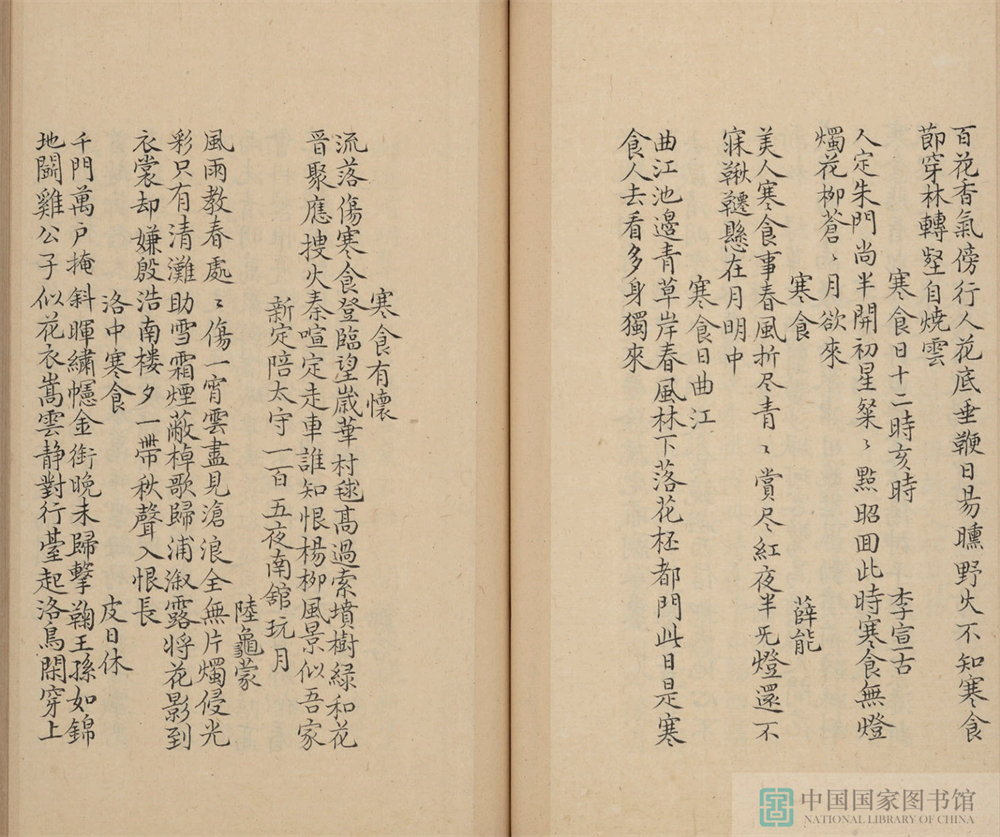 百花香氣傍行人花底垂鞭日昜曛野火不知寒食
節穿林轉壑自燒雲
寒食日十二時亥時 李宣古
人定朱門尚半開初星粲〻點昭回此時寒食無燈
燭花柳蒼〻月欲來
寒食 薛能
美人寒食事春風折尽青〻賞尽紅夜半旡燈還不
寐鞦韆懸在月明中
寒食日曲江
曲江池邊青草岸春風林下落花杯都門此日是寒
食人去看多身獨來
寒食有懷
流落傷寒食登臨望歲華村毬高過索墳樹緑和花
晉聚應搜火秦喧定走車誰知恨楊柳風景似吾家
新定陪太守一百五夜南舘玩月
陸龜蒙
風雨教春處〻傷一宵雲盡見滄浪全無片燭侵光
彩只有清灘助雪霜煙蔽棹歌歸浦溆露將花影到
衣裳却嫌殷浩南楼夕一帶秋聲入恨長
洛中寒食 皮日休
千門萬户掩斜暉繡幰金銜晩未歸擊鞠王孫如錦
地鬬雞公子似花衣嵩雲静對行臺起洛鳥閑穿上
中国国家图书馆
NATIONAL LIBRARY OF CHINA